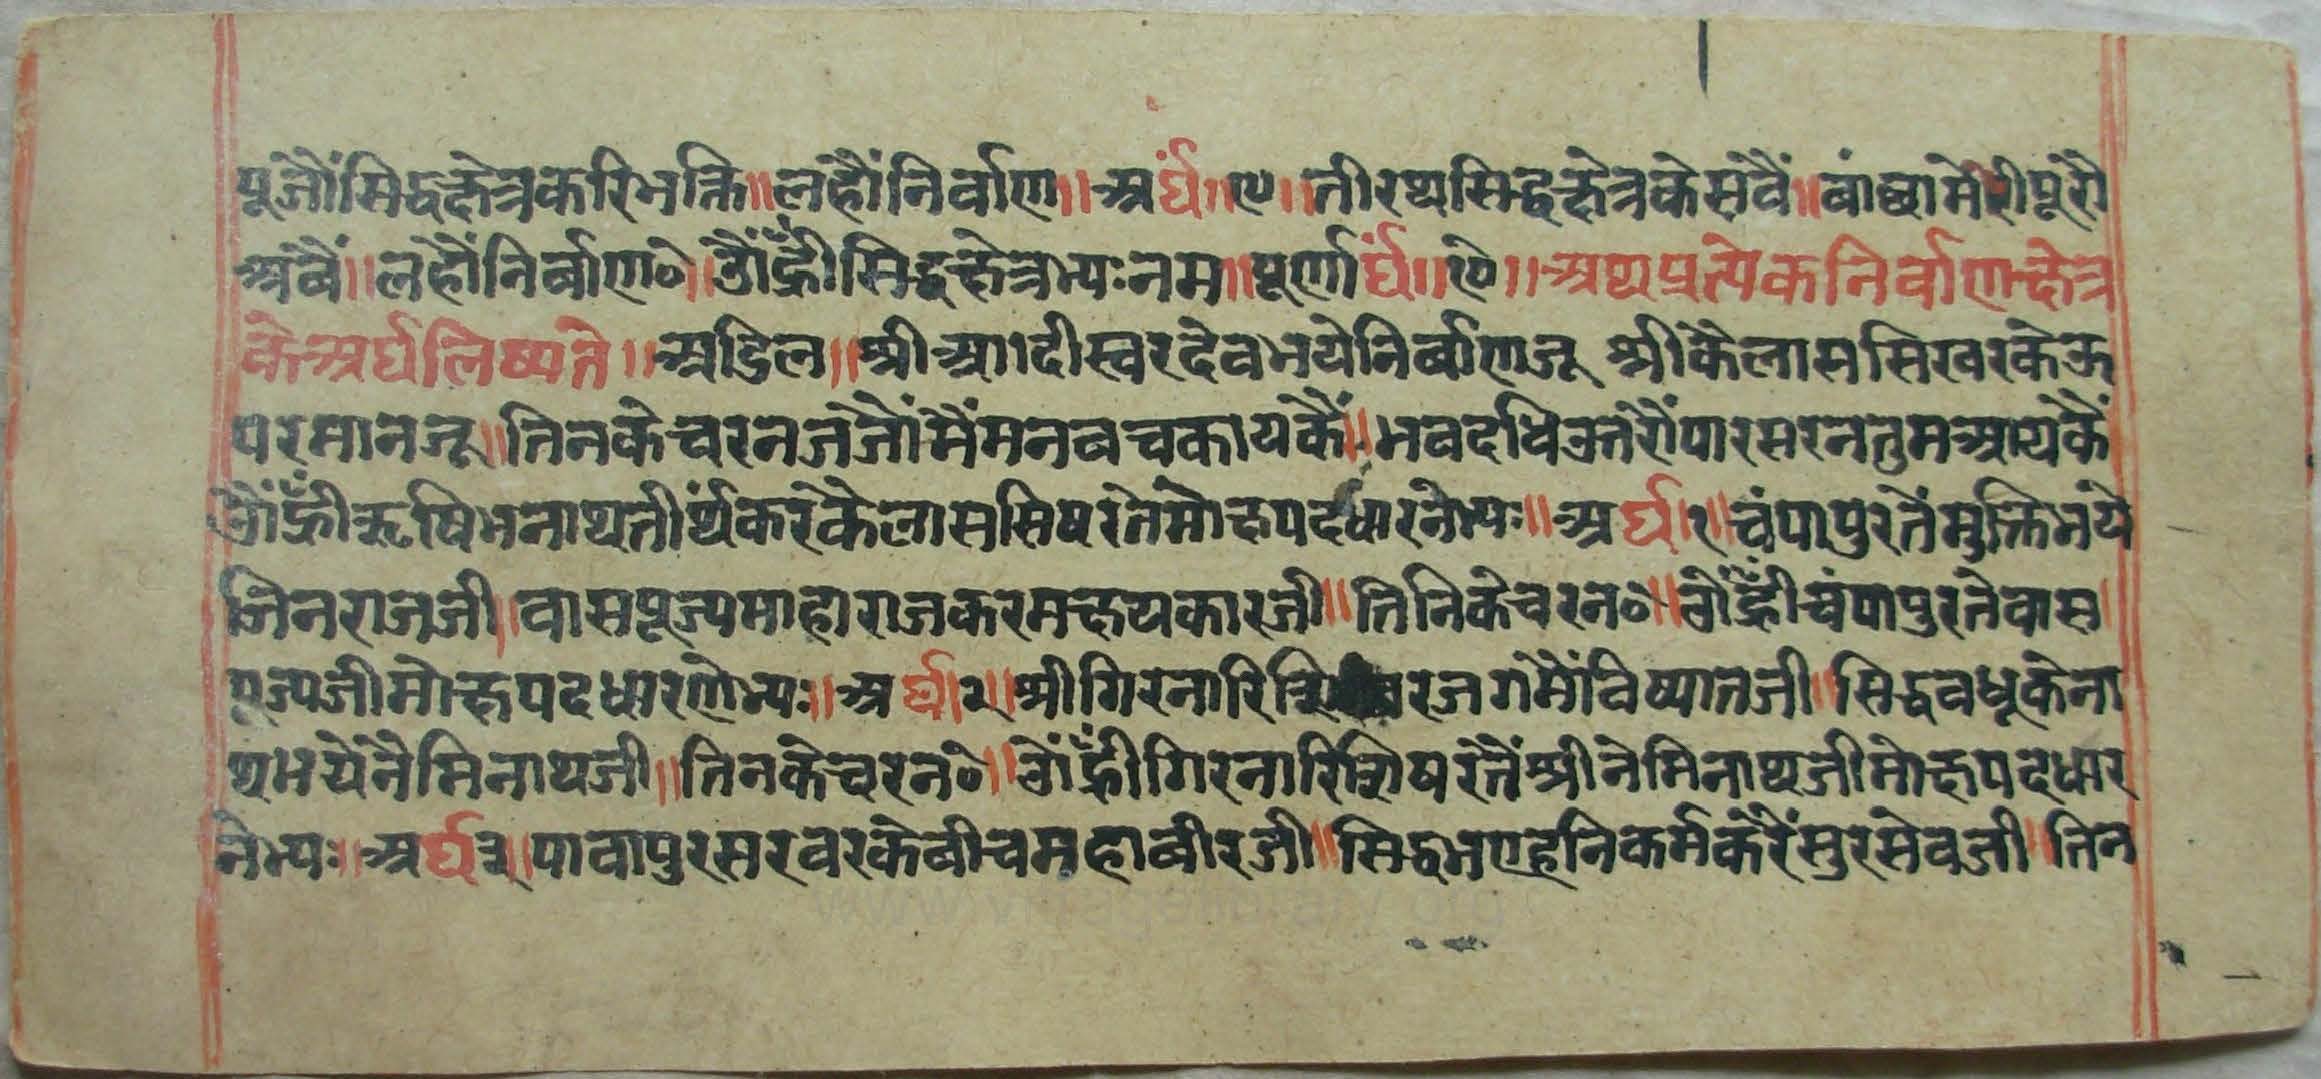 पूजौंसिद्धक्षेत्रकरिभक्ति॥लहौंनिर्वाण॥अर्घं॥९॥तीरथसिद्धक्षेत्रकेसवैं॥वांछामेरीपूरौ
अवैं॥लहौंनिर्वाण०॥ओंह्रींसिद्धक्षेत्रभ्यःनम॥पूर्णार्घं॥९॥अथप्रत्येकनिर्वाणक्षेत्र
केअर्घलिष्यते॥अडिल॥श्रीआदीस्वरदेवभयेनिर्बाणजू श्रीकैलाससिखरकेऊ
परमानजू॥तिनकेचरनजजौंमैंमनवचकायकैं॥भवदधिउतरौंपारसरनतुमआयकैं
ओंह्रींऋषिभनाथतीर्थंकरकैलाससिषरतेंमोक्षपदधारनेभ्यः॥अर्घ१॥चंपापुरतेंमुक्तिभये
जिनराजजी॥वासपूज्यमाहाराजकरमक्षयकारजी॥तिनिकेचरन०॥ओंह्रींचंपापुरतेवास
पूज्यजीमोक्षपदधारणेभ्यः॥अर्घ।२॥श्रीगिरनारिशिखरजगमैंविष्यातजी॥सिद्धवधूकेना
थभयेंनैमिनाथजी॥तिनकेचरन०॥ओंह्रींगिरनारिशिषरतैंश्रीनेमिनाथजीमोक्षपदधार
नेभ्यः॥अर्घ३॥पावापुरसरवरकेबीचमहाबीरजी॥सिद्धभएहनिकर्मकरैंसुरसेवजी॥तिन
www.vitragelibrary.org